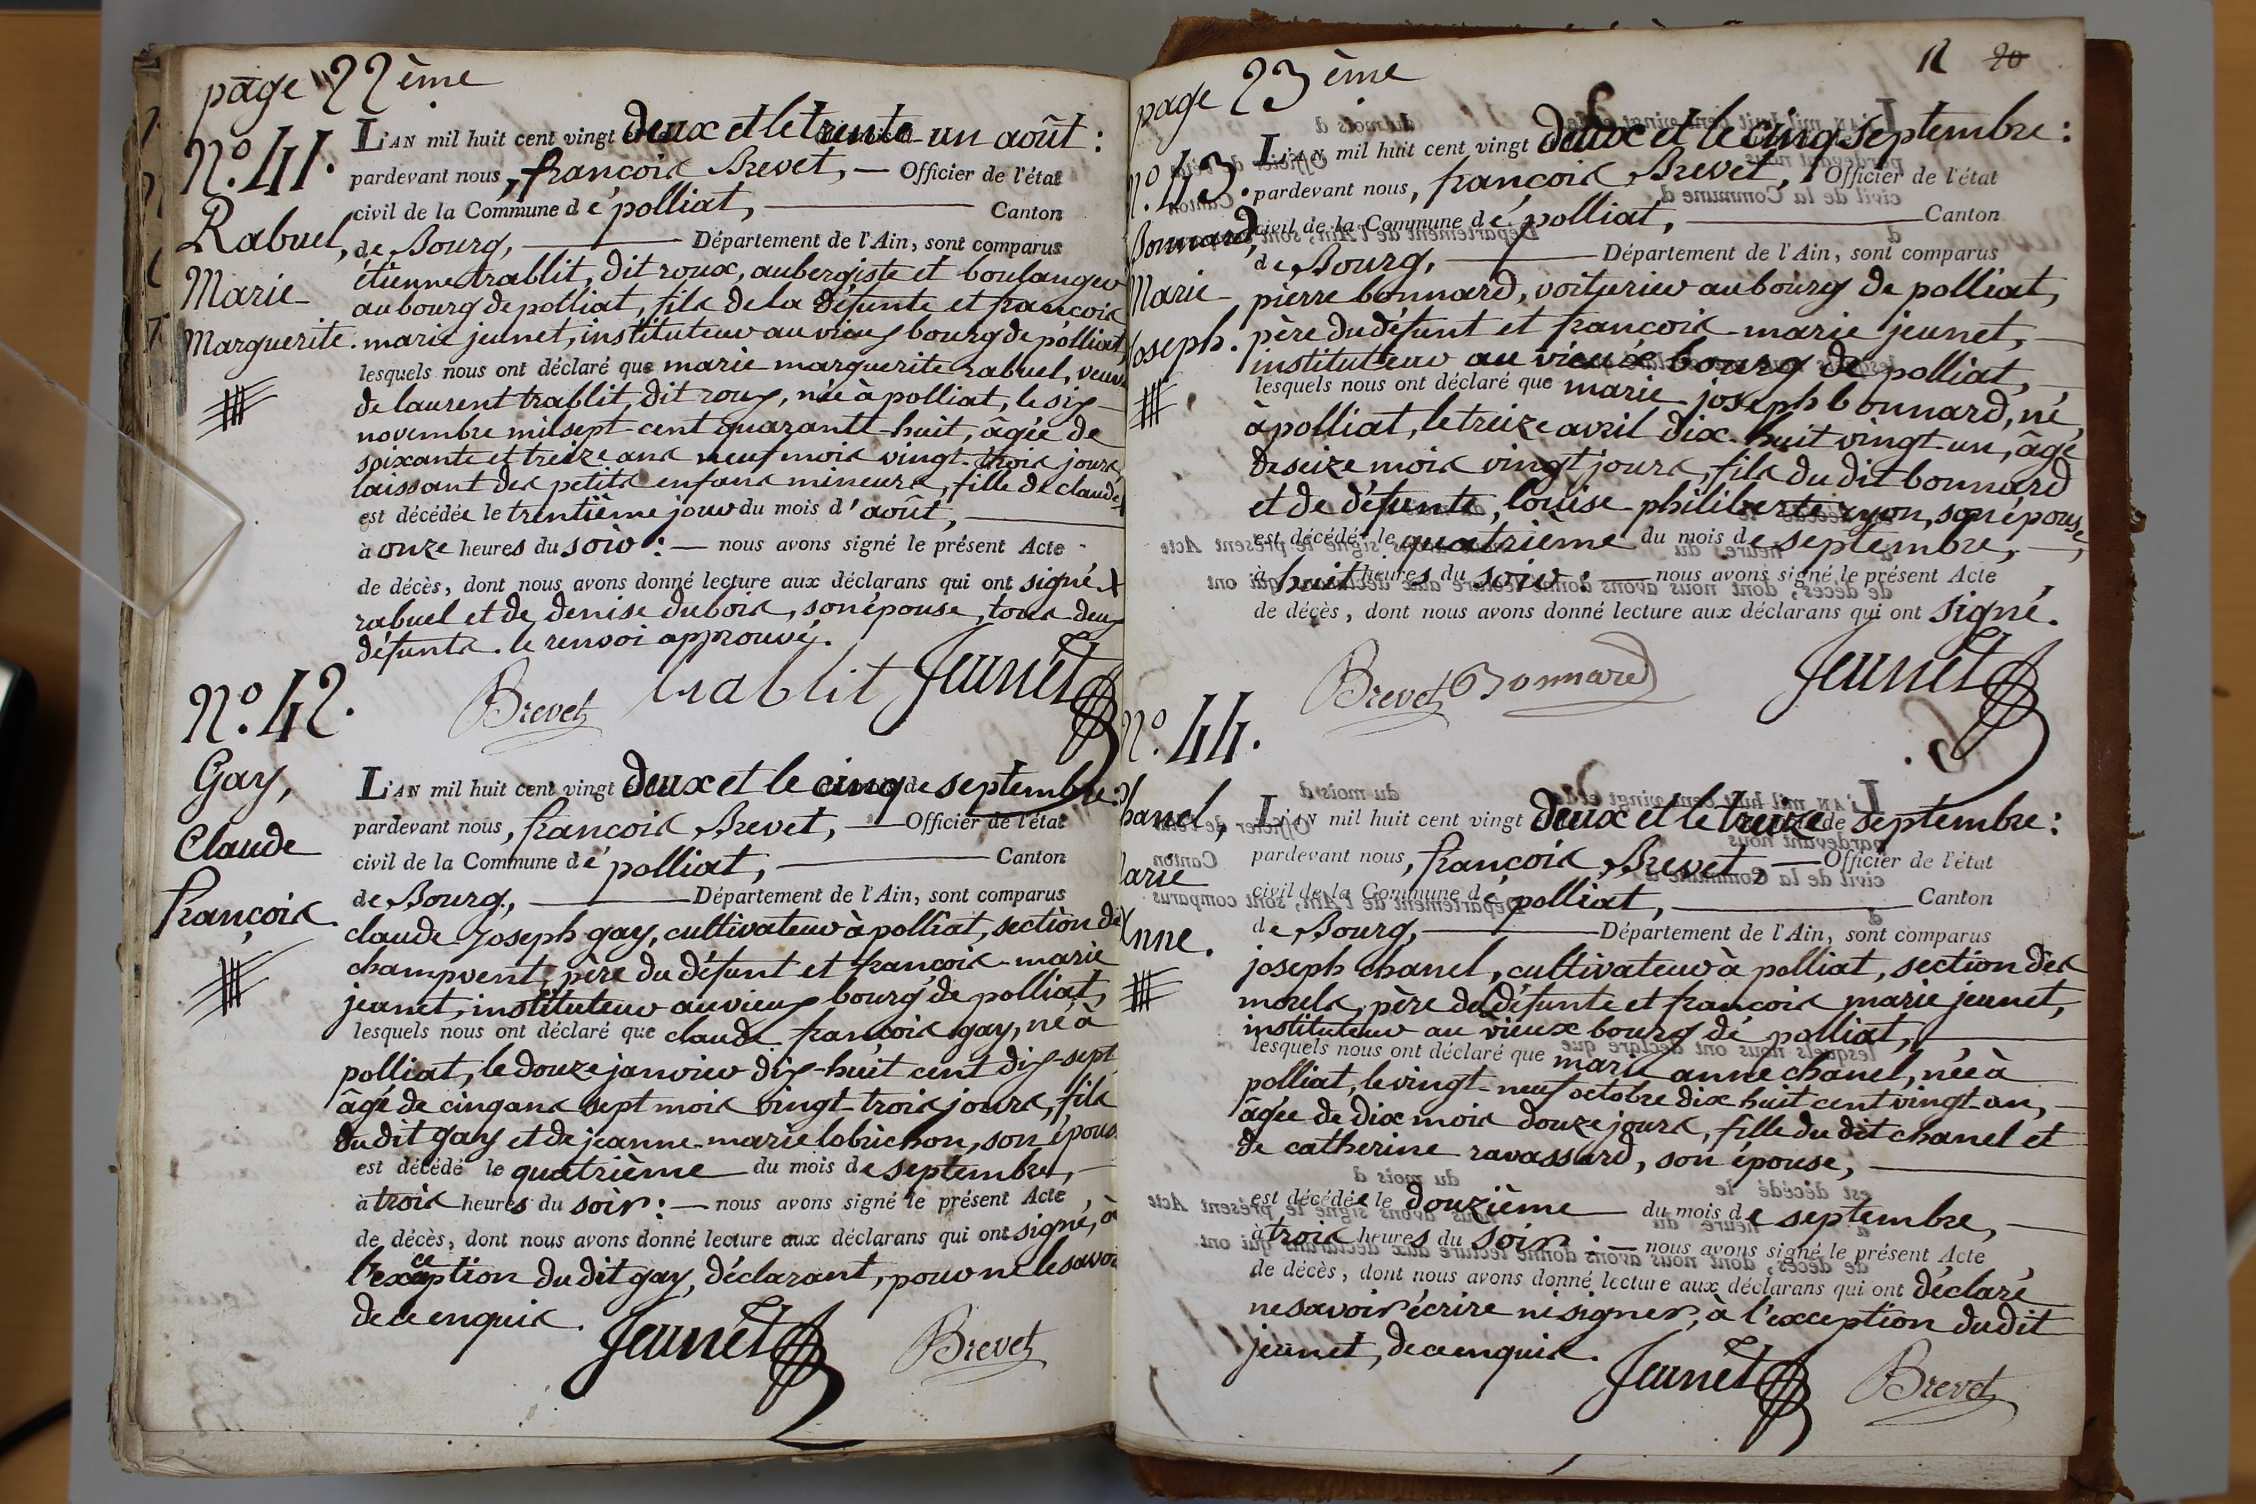 page 22ème
N.o 41.
Rabuel,
Marie
Marguerite.
L'AN mil huit cent vingt deux et le trente-un août :
pardevant nous, françois Brevet, — Officier de l'état
civil de la Commune de polliat, — Canton
de Bourg, — Département de l'Ain, sont comparus
étienne trablit, dit roux, aubergiste et boulanger
au bourg de polliat, fils de la défunte et françois
marie jeunet, instituteur au vieux bourg de polliat,
lesquels nous ont déclaré que marie marguerite rabuel, veuve
de laurent trablit, dit roux, née à polliat, le six
novembre mil sept-cent quarante-huit, âgée de
soixante et treize ans neuf mois vingt-trois jours,
laissant des petits enfans mineurs, fille de claude +
est décédée le trentième jour du mois d'août, —
à onze heures du soir : — nous avons signé le présent Acte
de décès, dont nous avons donné lecture aux déclarans qui ont signé. +
rabuel et de denise dubois, son épouse, tous deux
défunts. le renvoi approuvé.
Brevet trablit Jeunet
N.o 42.
Gay,
Claude
françois.
L'AN mil huit cent vingt deux et le cinq de septembre :
pardevant nous, françois Brevet, — Officier de l'état
civil de la Commune de polliat, — Canton
de Bourg, — Département de l'Ain, sont comparus
claude joseph gay, cultivateur à polliat, section de
champvent, père du défunt et françois-marie
jeunet, instituteur au vieux bourg de polliat,
lesquels nous ont déclaré que claude françois gay, né à
polliat, le douze janvier dix-huit cent dix-sept
âgé de cinq ans sept mois vingt-trois jours, fils
du dit gay et de jeanne-marie lobrichon, son épouse
est décédé le quatrième du mois de septembre, —
à trois heures du soir : — nous avons signé le présent Acte
de décès, dont nous avons donné lecture aux déclarans qui ont signé, à
l'exception du dit gay, déclarant, pour ne le savoir
de ce enquis.
Jeunet Brevet
page 23ème
12 20
N.o 43.
Bonnard,
Marie
Joseph.
L'AN mil huit cent vingt deux et le cinq septembre :
pardevant nous, françois Brevet, Officier de l'état
civil de la Commune de polliat, — Canton
de Bourg, — Département de l'Ain, sont comparus
pierre bonnard, voiturier au bourg de polliat,
père du défunt et françois-marie jeunet, —
instituteur au vieux bourg de polliat, —
lesquels nous ont déclaré que marie joseph bonnard, né,
à polliat, le treize avril dix-huit vingt-un, âgé
de seize mois vingt jours, fils du dit bonnard
et de défunte, louise philiberte ryon, son épouse,
est décédé le quatrième du mois de septembre, —
à huit heures du soir : — nous avons signé le présent Acte
de décès, dont nous avons donné lecture aux déclarans qui ont signé.
Brevet Bonnard Jeunet
N.o 44.
hanel,
arie
nne.
L'AN mil huit cent vingt deux et le treize de septembre :
pardevant nous, françois Brevet, — Officier de l'état
civil de la Commune de polliat, — Canton
de Bourg, — Département de l'Ain, sont comparus
joseph chanel, cultivateur à polliat, section des
morels, père de défunte et françois marie jeunet,
instituteur au vieux bourg de polliat, —
lesquels nous ont déclaré que marie anne chanel, née à
polliat, le vingt-neuf octobre dix huit cent vingt-un, —
âgée de dix mois douze jours, fille du dit chanel et
de catherine ravassard, son épouse, —
est décédée le douzième du mois de septembre, —
à trois heures du soir : — nous avons signé le présent Acte
de décès, dont nous avons donné lecture aux déclarans qui ont déclaré
ne savoir écrire ni signer, à l'exception du dit
jeunet, de ce enquis.
Jeunet Brevet